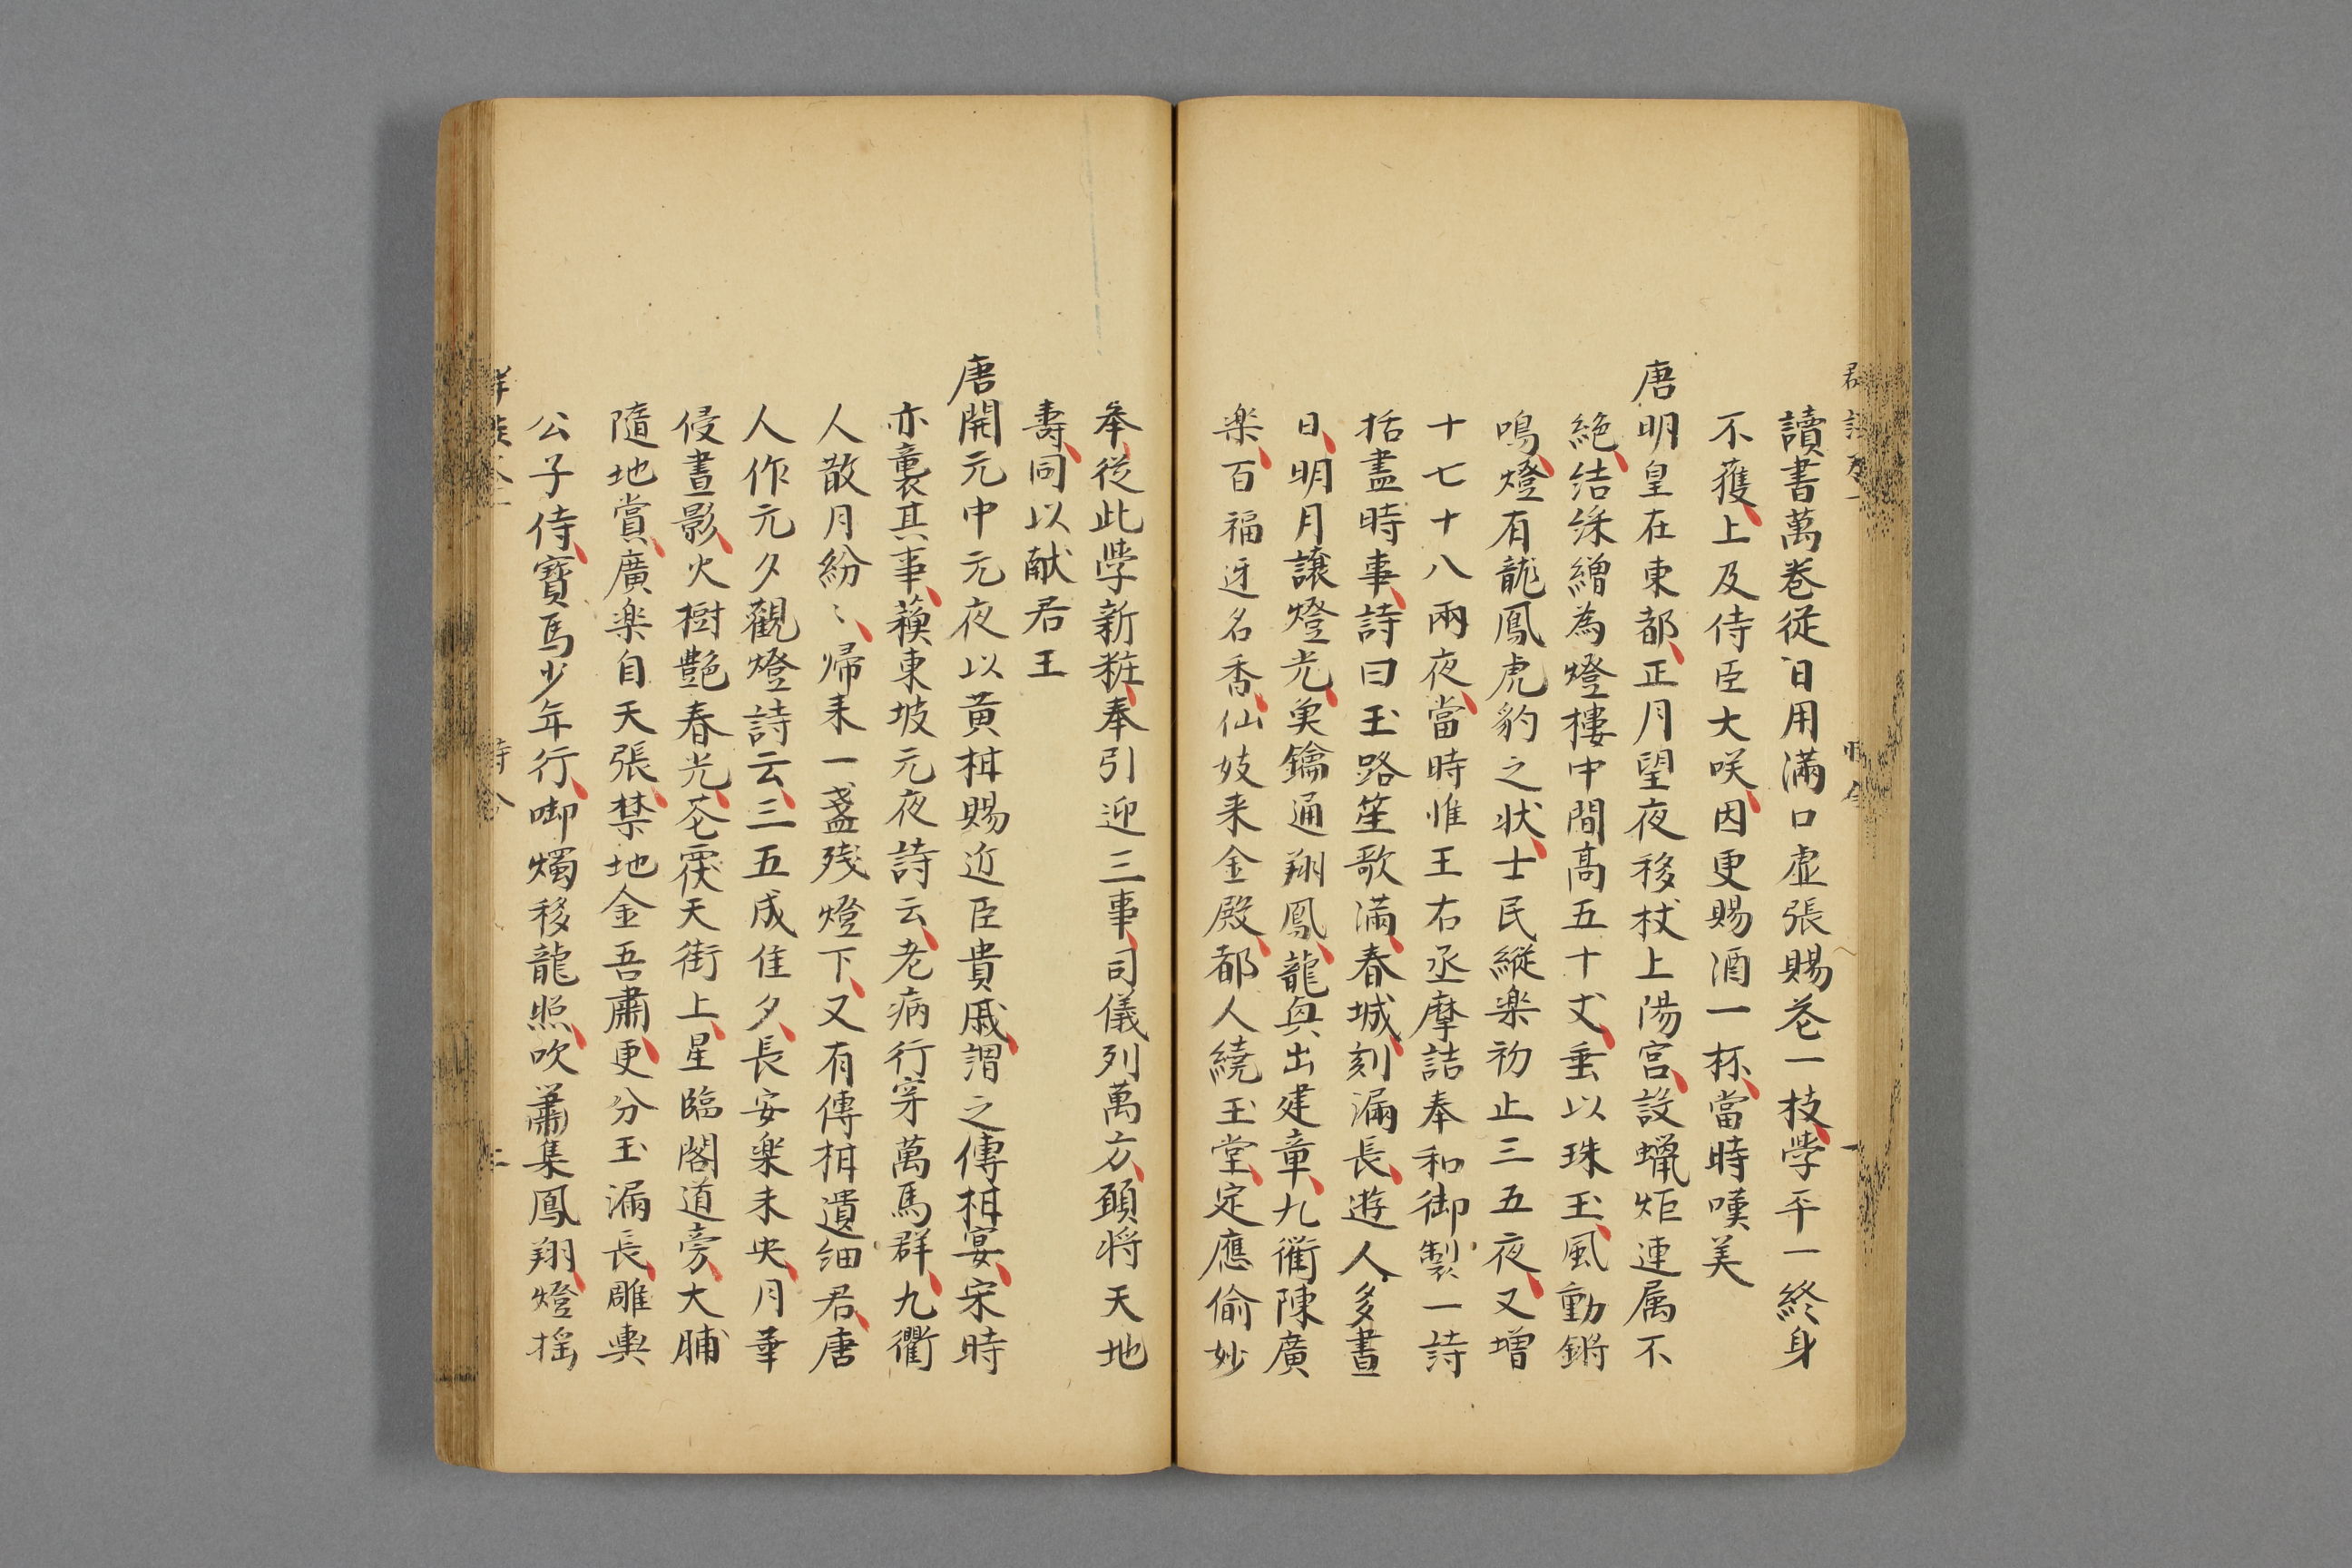 讀書萬卷従日用滿口虛張賜苍一枝學平一終身
不獲上及侍臣大咲因更賜酒一杯當時嘆美
唐明皇在東都正月望夜移杖上陽宮設蠟炬連属不
絶結綵繒為燈樓中間髙五十丈垂以珠玉風動鏘
鳴燈有龍鳳虎豹之状士民縦楽初止三五夜又增
十七十八兩夜當時惟王右丞摩詰奉和御製一詩
括盡時事詩曰玉路笙歌滿春城刻漏長遊人多晝
日明月讓燈光奐鑰通翔鳳龍輿出建章九衢陳廣
楽百福迓名香仙妓来金殿都人繞玉堂定應偷妙
奉従此學新粧奉引迎三事司儀列萬方頭将天地
壽同以献君王
唐開元中元夜以黄柑賜近臣貴戚謂之傳柑宴宋時
亦襲其事蘓東坡元夜詩云老病行穿萬馬群九衢
人散月紛〻歸来一盞残燈下又有傳柑遺細君唐
人作元夕觀燈詩云三五成佳夕長安楽未央月華
侵晝影火樹艶春光苍霞天街上星臨閣道旁大酺
隨地賞廣楽自天張禁地金吾肅更分玉漏長雕輿
公子侍寳馬少年行啣燭移龍照吹簫集鳳翔燈揺